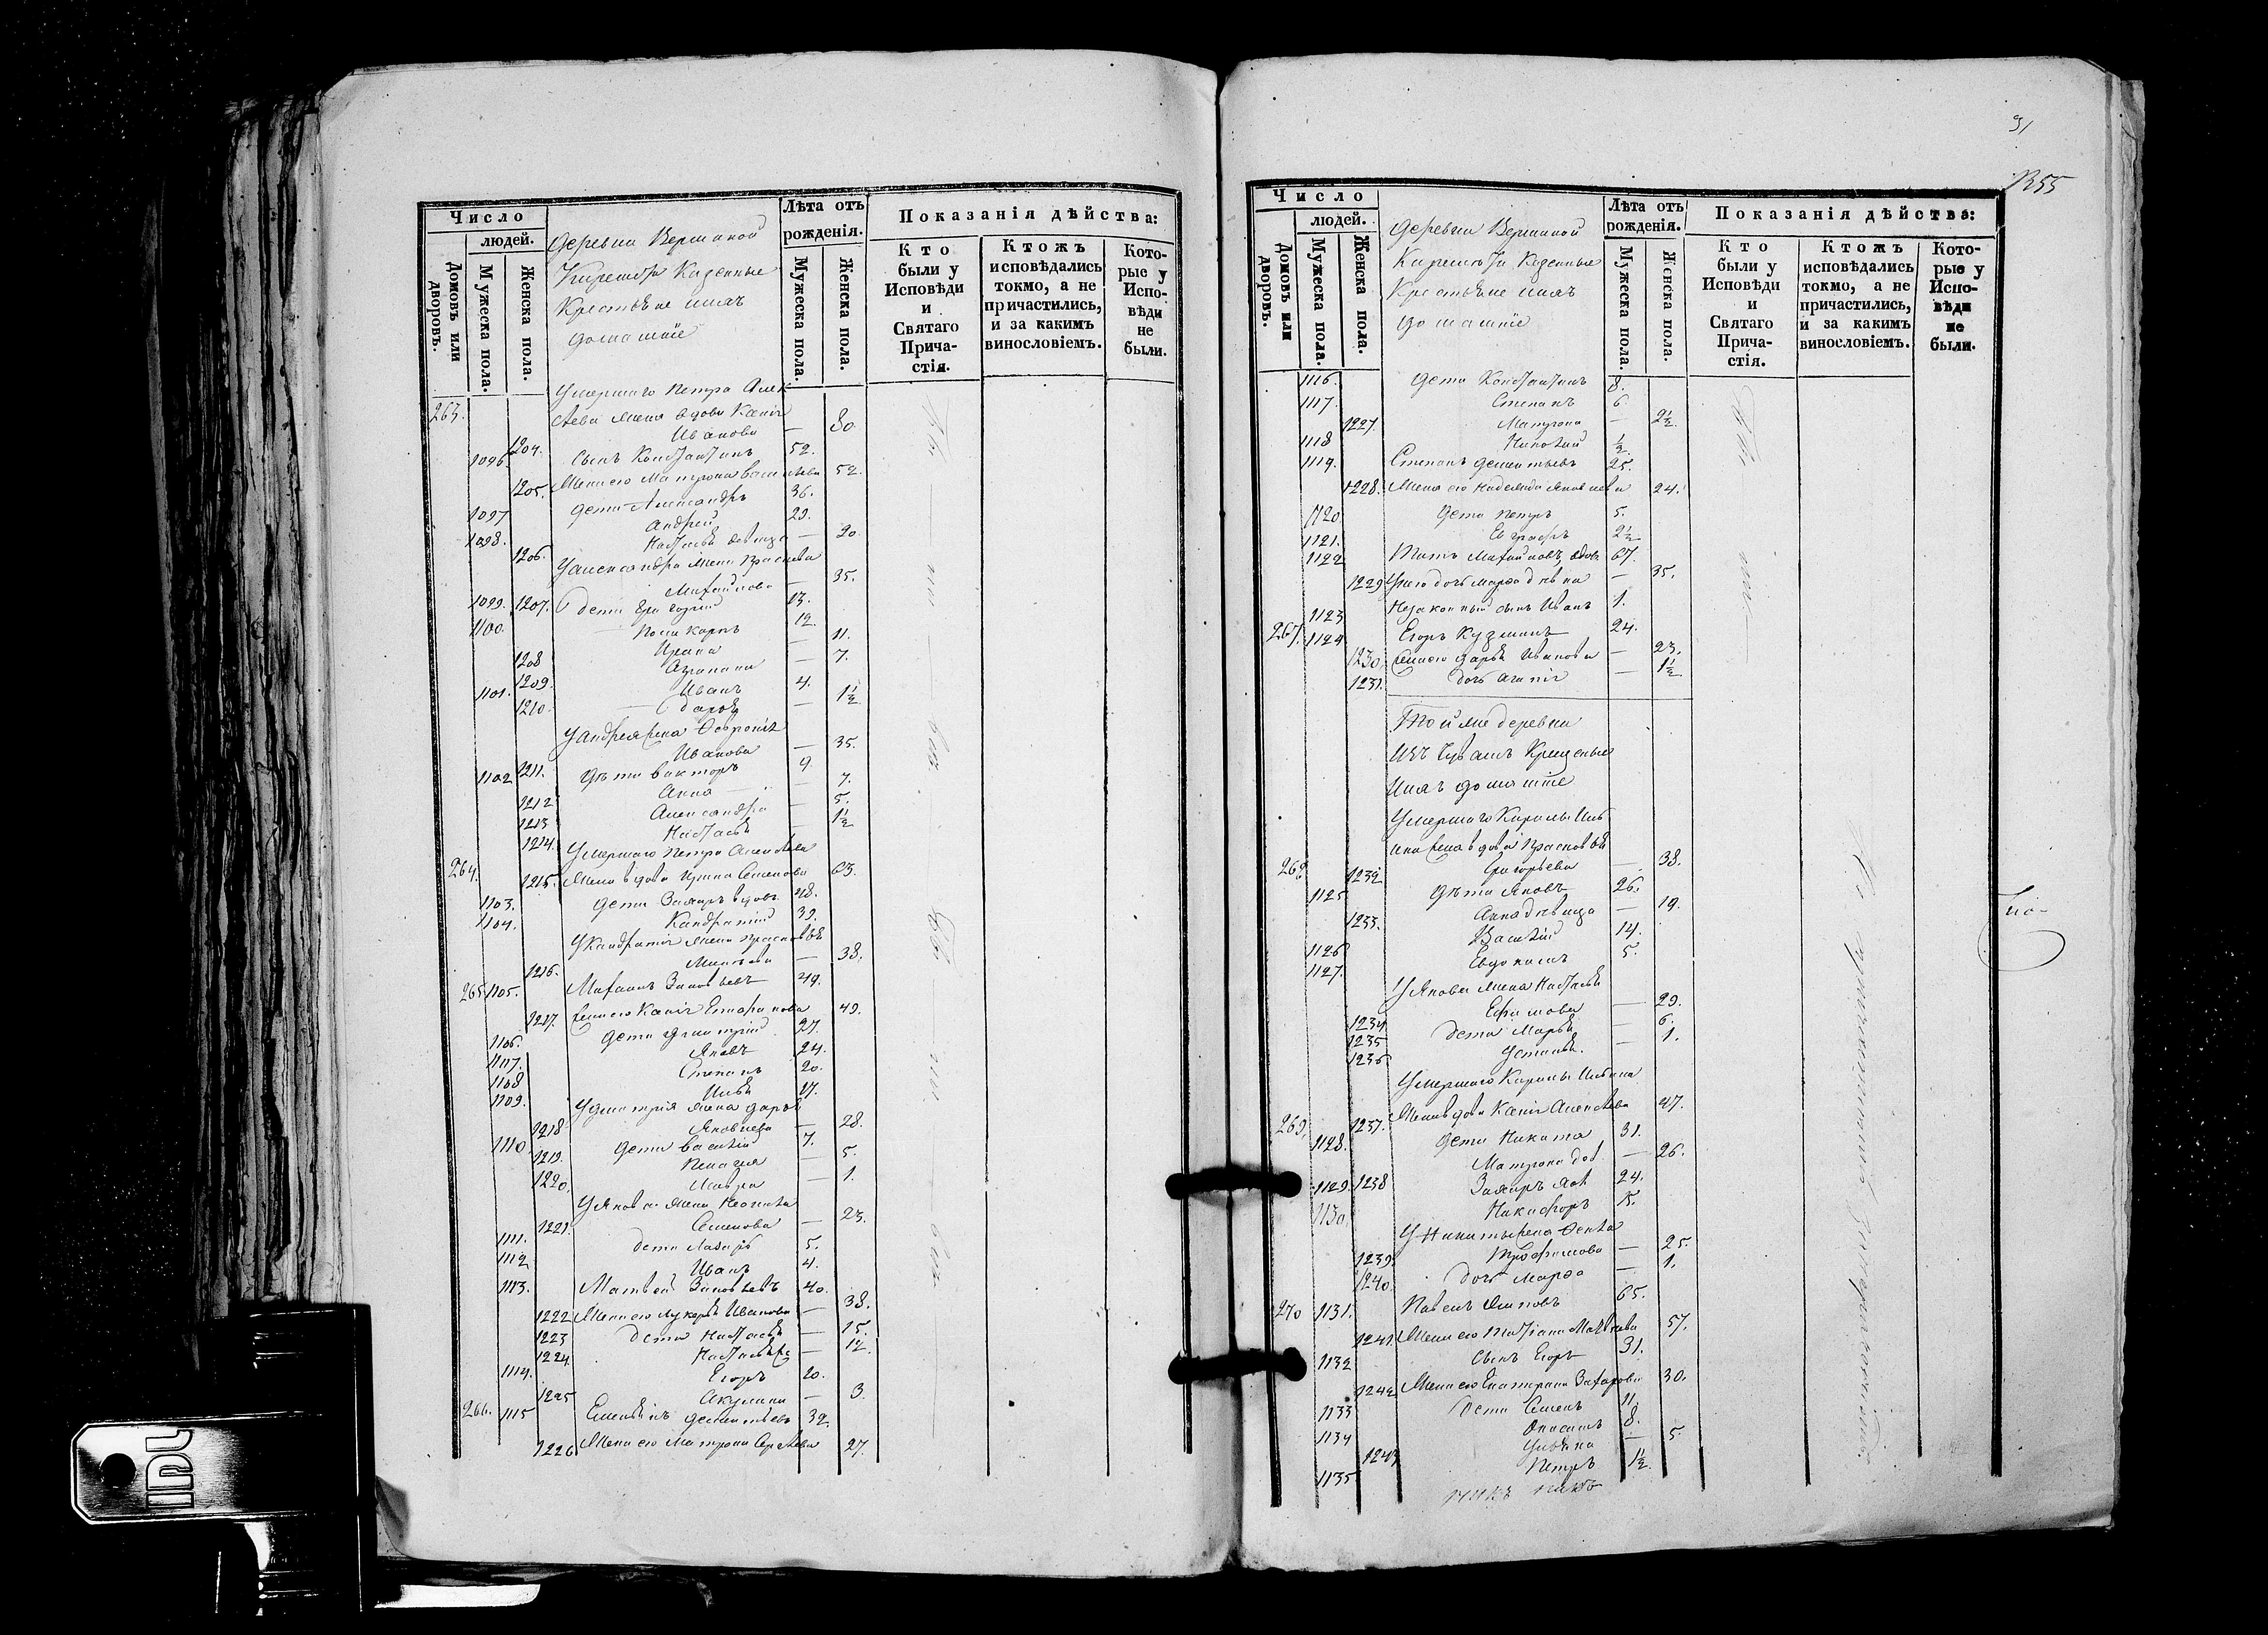 Число
людей.
Домовъ или дворовъ.
Мужеска пола.
Женска пола.
Деревни Вершиной
Киремети Казенные
Крестьяне и ихъ
домашніе
Лѣта отъ
рожденія.
Мужеска пола.
Женска пола.
Показанія дѣйства:
Кто были у Исповѣди и Святаго Причастія.
Ктожъ исповѣдались токмо, а не причастились, и за какимъ винословіемъ.
Которые у Исповѣди не были.
Умершаго Петра Алек
263. сѣева жена вдова Ксенія
1204. Иванова — 80.
1096. Сынъ Константинъ 52.
1205. Жена его Матрона Васильева 52.
1097 Дети Александръ 36.
1098. Андрей 29.
1206. Настасья девица — 20.
У Александра жена Прасковья
1207. Михайлова — 35.
1099. Дети Григорій 13.
1100. Поликарпъ 12.
1208 Ирина — 11.
1209. Агрипина — 7.
1101. Иванъ 4.
1210. Дарья — 1½
У Андрея жена Февронія
1211. Иванова — 35.
1102 Дѣти Викторъ 9.
1212 Анна — 7.
1213 Александра — 5.
1214. Настасья — 1½
Умершаго Петра Алексѣева
264. 1215. Жена вдова Ирина Семенова 63.
1103. Дети Захаръ вдовъ 48.
1104. Кандратій 39.
У Кандратія жена Прасковья
1216. — 38.
265. 1105. Михаилъ Зиновьевъ 49.
1217. Жена его Ксенія Епифанова 49.
1106. Дети Дмитрій 27.
1107. Яковъ 24.
1108 Степанъ 20.
1109. Илья 17.
У Дмитрія жена Дарья
1218 Яковлева — 28.
1110. Дети Василій 7.
1219. Пелагея — 5.
1220. Мавра — 1.
У Якова жена
1221. Семенова — 23.
1111. Дети Лазарь 5.
1112 Иванъ 4.
1113. Матвей Зиновьевъ 40.
1222 Жена его Лукерья Иванова — 38.
1223 Дети Настасья — 15.
1224 Настасья — 12.
1114. Егоръ 20.
1225 Акулина — 3.
266. 1115 Емельянъ Дементьевъ 32.
1226 Жена его Матрона Сергѣева 27.
31
1355
Число
людей.
Домовъ или дворовъ.
Мужеска пола.
Женска пола.
Деревни Вершиной
Киремети Казенные
Крестьяне и ихъ
домашніе
Лѣта отъ
рожденія.
Мужеска пола.
Женска пола.
Показанія дѣйства:
Кто были у Исповѣди и Святаго Причастія.
Ктожъ исповѣдались токмо, а не причастились, и за какимъ винословіемъ.
Которые у Исповѣди не были.
1116. Дети Константинъ 8.
1117. Степанъ 6.
1227. Матрона — 2½.
1118 Николай ½.
1119. Степанъ Дементьевъ 25.
1228. Жена его Надежда Яковлева 24.
1120 Дети Петръ 5.
1121. Евграфъ 2½
1122 Михайловъ, вдовъ 67.
1229 У него дочь Марфа девка — 35.
1123 Незаконный сынъ Иванъ 1.
267. 1124 Егоръ Кузминъ 24.
1230. Жена его Дарья Иванова — 23.
1231. Дочь Агапія — 1½
Той же деревни
Изъ Чувашъ Крещеные
и ихъ домашніе
Умершаго Кирилы Иль
ина жена вдова Прасковья
268 1232 Григорьева — 38.
1125 Дѣти Яковъ 26.
1233. Анна девица — 19.
1126 Василій 14.
1127. Евдокимъ 5.
У Якова жена Настасья
1234 Ефимова — 29.
1235 Дети Марья — 6.
1236 Устинья. — 1.
Умершаго Кирилы Ильина
269. 1237. Жена вдова Ксенія Алексѣева 47.
1128. Дети Никита 31.
1238 Матрона дев — 26.
1129. Захаръ 24.
1130. Никифоръ 15.
У Никиты жена Фекла
1239. Трофимова — 25.
1240. Дочь Марфа — 1.
270 1131. Павелъ Осиповъ 65.
1241. Жена его Татіана Матвѣева 57.
1132 Сынъ Егоръ 31.
1242 Жена его Екатерина Захарова 30.
1133 Дети Семенъ 11.
1134 Анисимъ 8.
1243 Ульяна — 5
1135 Петръ 1½.